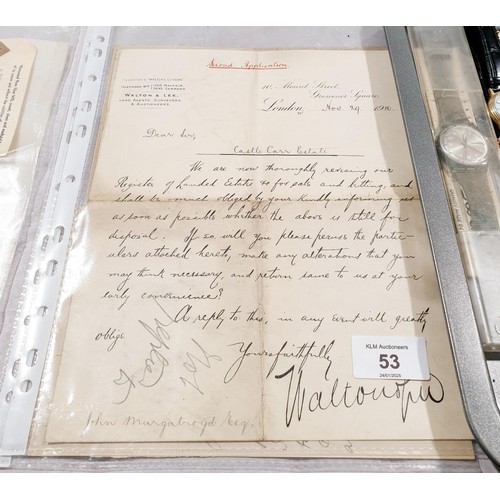 Second Application
TELEPHONE Nos
WALTON & LEE,
LAND AGENTS, SURVEYORS
& AUCTIONEERS.
10. Mount Street,
Grosvenor Square,
London, Nov. 29 1910.
Dear Sir,
Castle Carr Estate
We are now thoroughly revising our
Register of Landed Estate &c for sale and letting, and
shall be much obliged by your kindly informing us
as soon as possible whether the above is still for
disposal. If so will you please peruse the partic-
ulars attached hereto, make any alterations that you
may think necessary, and return same to us at your
early convenience?
A reply to this, in any event will greatly
oblige
Yours faithfully
Walton & Lee
John Murgatroyd Esq.
KLM Auctioneers
53
24/01/2025